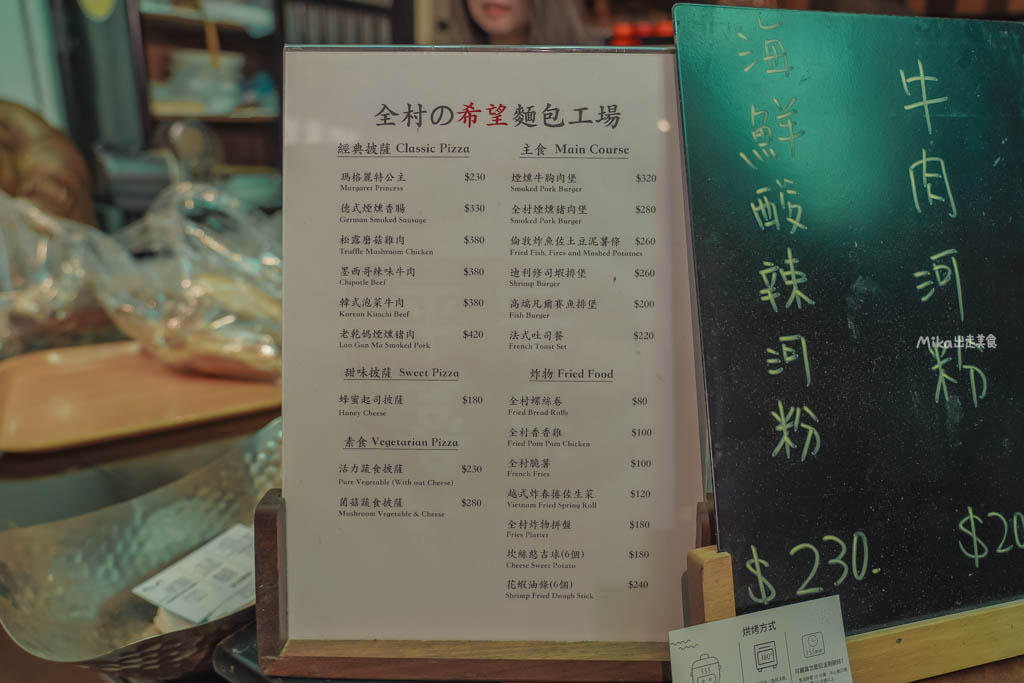 全村の希望麵包工場
經典披薩 Classic Pizza
瑪格麗特公主 $230
Margaret Princess
德式煙燻香腸 $330
German Smoked Sausage
松露磨菇雞肉 $380
Truffle Mushroom Chicken
墨西哥辣味牛肉 $380
Chipotle Beef
韓式泡菜牛肉 $380
Korean Kimchi Beef
老乾媽煙燻豬肉 $420
Lao Gan Ma Smoked Pork
甜味披薩 Sweet Pizza
蜂蜜起司披薩 $180
Honey Cheese
素食 Vegetarian Pizza
活力蔬食披薩 $230
Pure Vegetable (With out Cheese)
菌菇蔬食披薩 $280
Mushroom Vegetable & Cheese
主食 Main Course
煙燻牛胸肉堡 $320
Smoked Pork Burger
全村煙燻豬肉堡 $280
Smoked Pork Burger
倫敦炸魚佐土豆泥薯條 $260
Fried Fish, Fires and Mashed Potatoes
迪利修司蝦排堡 $260
Shrimp Burger
高端凡爾賽魚排堡 $200
Fish Burger
法式吐司餐 $220
French Toast Set
炸物 Fried Food
全村螺絲卷 $80
Fried Bread Rolls
全村香香雞 $100
Fried Pom Pom Chicken
全村脆薯 $100
French Fries
越式炸春捲佐生菜 $120
Vietnam Fried Spring Roll
全村炸物拼盤 $180
Fries Platter
坎絲慈吉球(6個) $180
Cheese Sweet Potato
花蝦油條(6個) $240
Shrimp Fried Dough Stick
海鮮酸辣河粉
$230.
牛肉河粉
$20
Mika出走美食
烘烤方式
180°